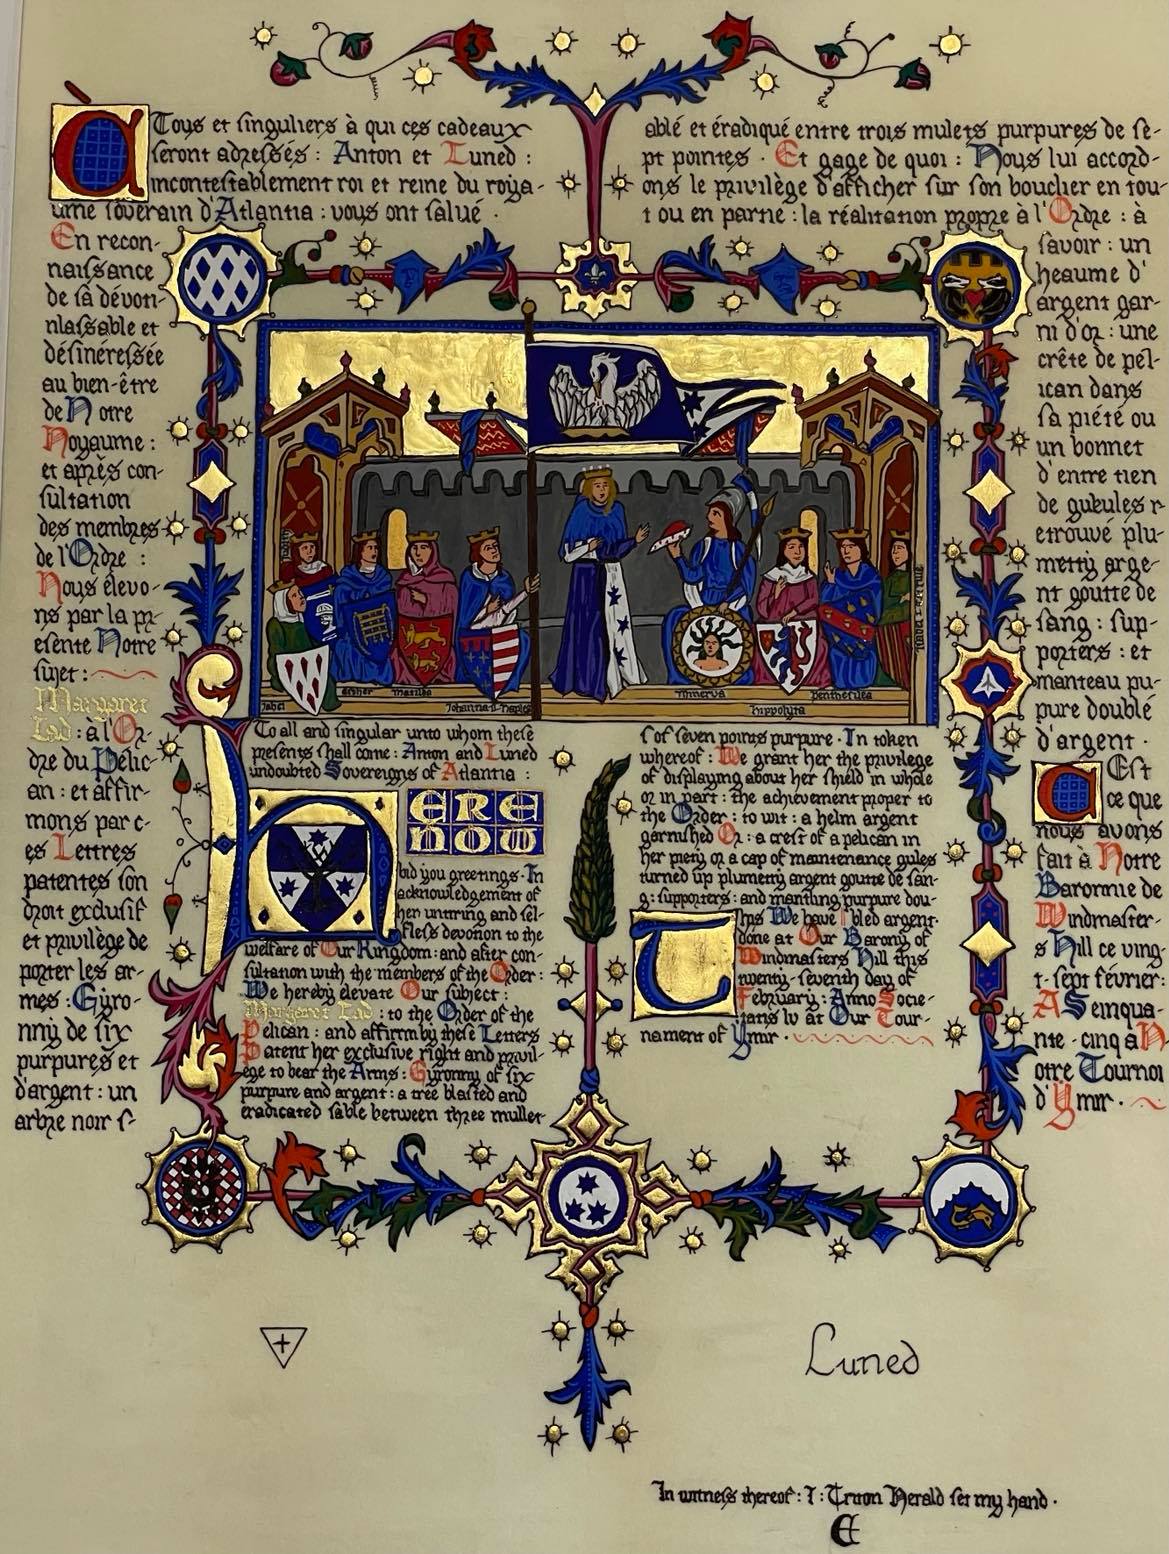 A Tous et singuliers à qui ces cadeaux
seront adressés : Anton et Luned :
incontestablement roi et reine du roya-
ume soverain d'Atlantia : vous ont salué ·
En recon-
naissance
de sa dévon-
nlassable et
désinéressée
au bien-être
de Notre
Royaume :
et après con-
sultation
des membres
de l'Ordre :
Nous élevo-
ns par la pr-
esente Notre
sujet :
Margaret
Lad : à l'Or-
dre du Pélic-
an : et affir-
mons par c-
es Lettres
patentes son
droit exclusif
et privilège de
porter les ar-
mes : Gyro-
nny de six
purpures et
d'argent : un
arbre noir s-
ablé et éradiqué entre trois mulets purpures de se-
pt pointes · Et gage de quoi : Nous lui accord-
ons le privilège d'afficher sur son bouclier en tou-
t ou en partie : la réalitation propre à l'Ordre : à
savoir : un
heaume d'
argent gar-
ni d'or : une
crête de pél-
ican dans
sa piété ou
un bonnet
d'entre tien
de gueules r-
etrouvé plu-
metty arge-
nt goutte de
sang : sup-
porters : et
manteau pu-
pure doublé
d'argent ·
C'Est
ce que
nous avons
fait à Notre
Baronnie de
Windmaster-
s Hill ce ving-
t-sept février :
A S cinqua-
nte-cinq a N-
otre Tournoi
d'Ymir ·
Judith
Jahel
Esther
Matilda
Johanna II Naples
Minerva
Hippolyta
Penthesilea
To all and singular unto whom these
presents shall come : Anton and Luned
undoubted Sovereigns of Atlantia :
HERE
NOW
bid you greetings · In
acknowledgement of
her untiring and sel-
fless devotion to the
welfare of Our Kingdom : and after con-
sultation with the members of the Order :
We hereby elevate Our subject :
Margaret Lad : to the Order of the
Pelican : and affirm by these Letters
Patent her exclusive right and privil-
ege to bear the Arms : Gyronny of six
purpure and argent : a tree blasted and
eradicated sable between three mullet-
s of seven points purpure · In token
whereof : We grant her the privilege
of displaying about her shield in whole
or in part : the achievement proper to
the Order : to wit : a helm argent
garnished Or : a crest of a pelican in
her piety or a cap of maintenance gules
turned up plumetty argent goutte de san-
g : supporters : and mantling purpure dou-
bled argent ·
This We have
done at Our Barony of
Windmasters Hill this
twenty-seventh day of
February : Anno Socie-
tatis lv at Our Tour-
nament of Ymir ·
Luned
In witness thereof : I : Triton Herald set my hand ·